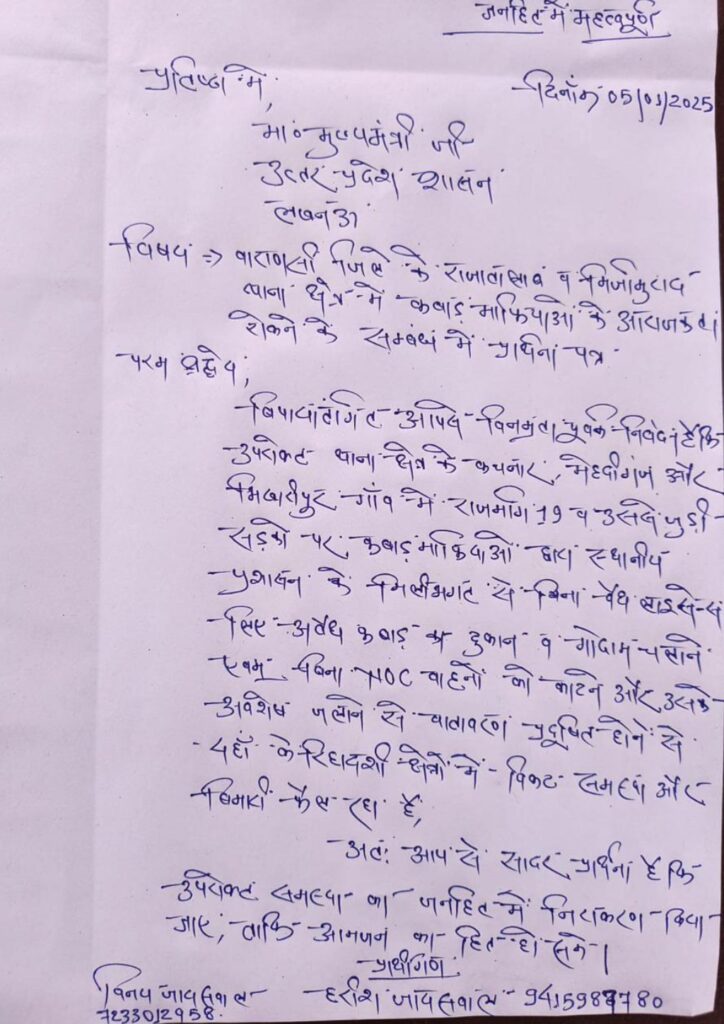 जनहित में महत्वपूर्ण
प्रतिष्ठा में,
दिनाँक 05/01/2025
मा० मुख्यमंत्री जी
उत्तर प्रदेश शासन
लखनऊ
विषय ⇒ वाराणसी जिले के राजातालाब व मिर्जामुराद
थाना क्षेत्र में कबाड़ माफियाओं के अराजकता
रोकने के सम्बंध में प्रार्थना पत्र
परम श्रद्धेय,
विनम्रता पूर्वक निवेदन है कि
उपरोक्त थाना क्षेत्र के कचनार, मेहदीगंज और
भिखारीपुर गाँव में राजमार्ग 19 व उससे जुड़ी
सड़को पर कबाड़ माफियाओं द्वारा स्थानीय
प्रशासन के मिलीभगत से बिना वैध लाइसेन्स
लिए अवैध कबाड़ का दुकान व गोदाम चलाने
एवम् बिना NOC वाहनों को काटने और उसके
अवशेष जलाने से वातावरण प्रदूषित होने से
यहाँ के रिहायशी क्षेत्रों में विकट समस्या और
बिमारी फैल रहा है,
अतः आप से सादर प्रार्थना है कि
उपरोक्त समस्या का जनहित में निराकरण किया
जाए, ताकि आमजन का हित हो सके।
प्रार्थीगण
विनय जायसवाल हरीश जायसवाल
7233012958.